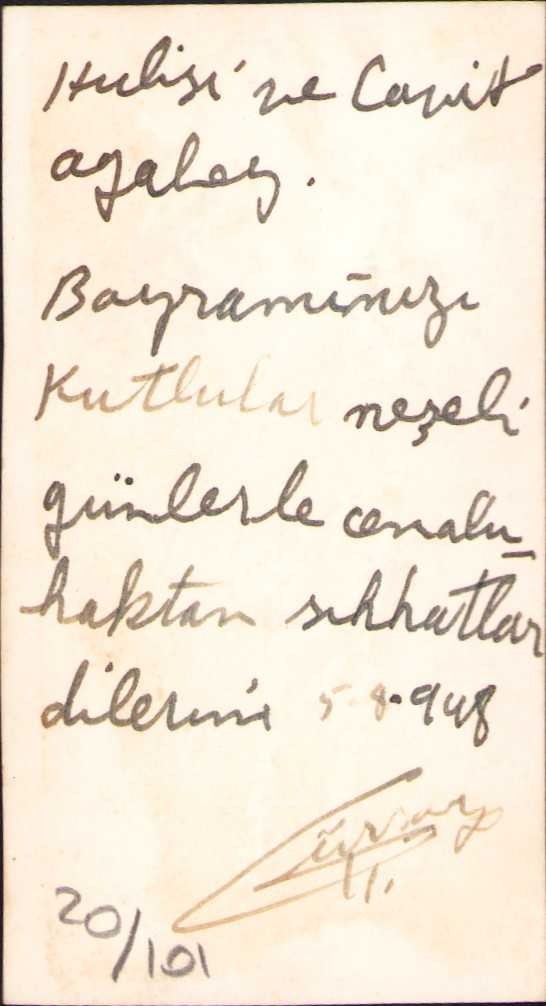 Hulisi ve Cavit
agabey.
Bayramınızı
Kutlular neşeli
günlerle cenabı
haktan sıhhatlar
dilerim 5-8-948
20/101